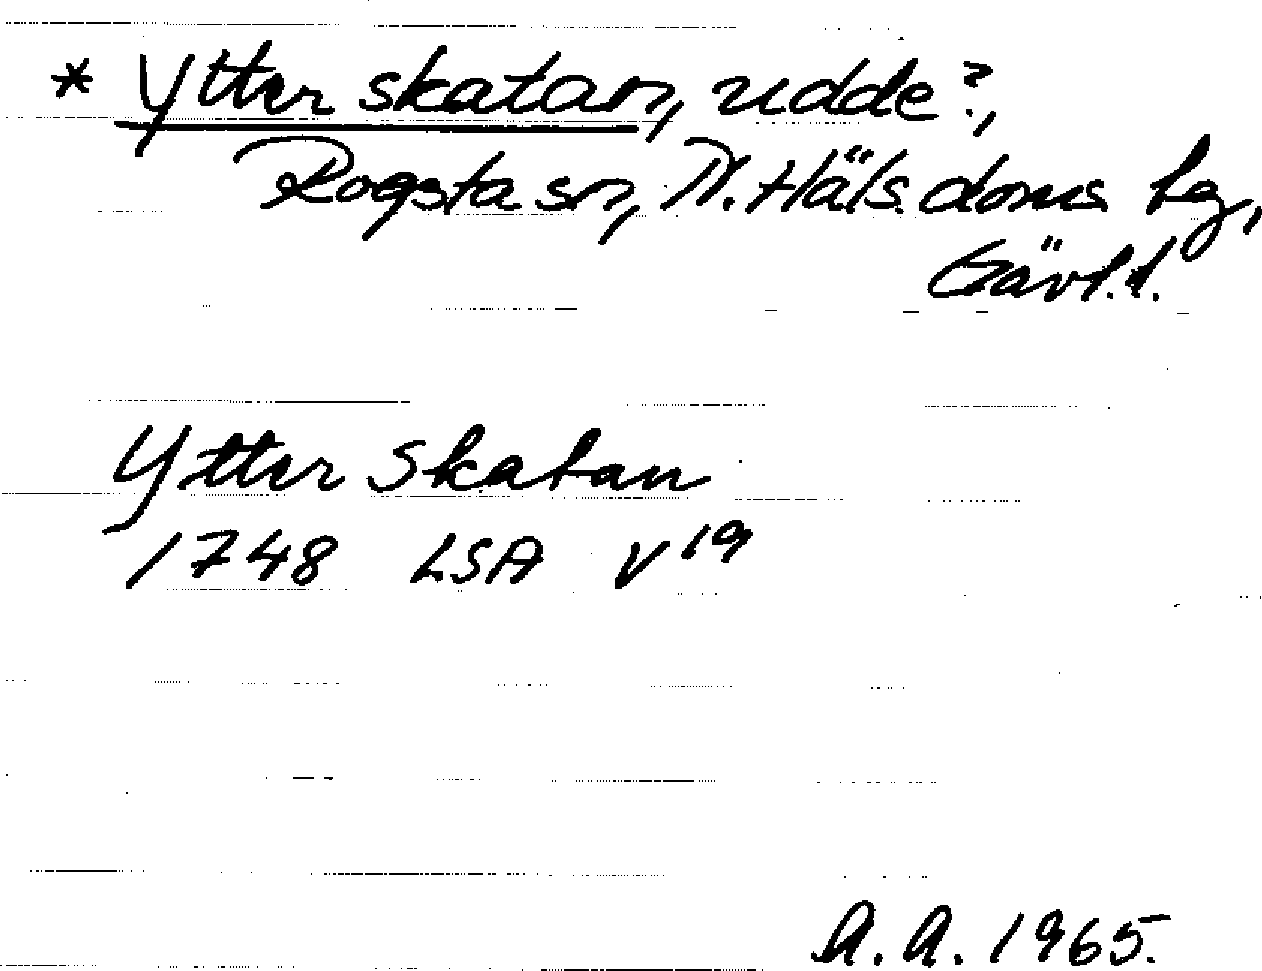 * Ytterskatan, udde?,
Rogsta sn, N. Häls. doms hg,
Gävl.l.
Ytter Skatan
1748 LSA V19
A. A. 1965.